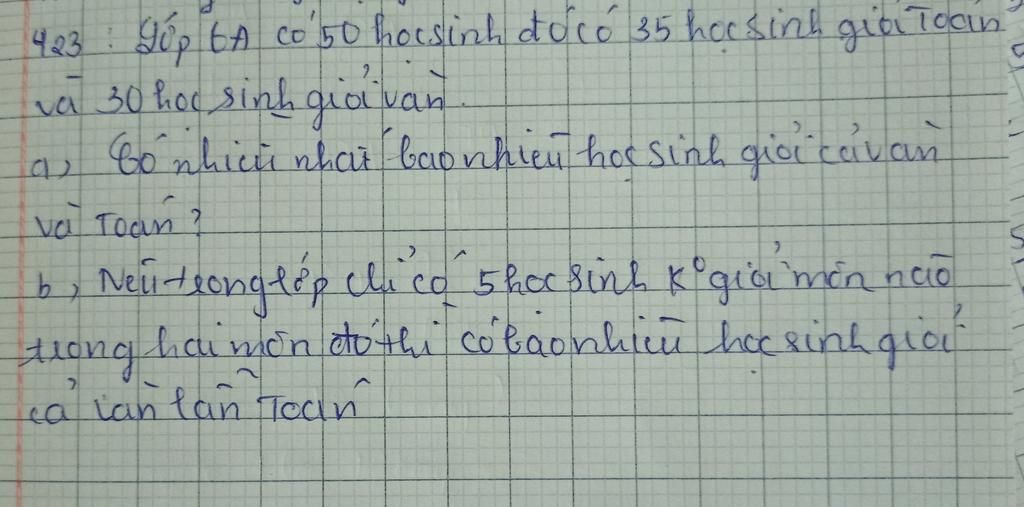 423: Lớp 6A có 50 học sinh đó có 35 học sinh giỏi Toán
và 30 học sinh giỏi văn.
a, Có nhiều nhất bao nhiêu học sinh giỏi cả văn
và Toán?
b, Nếu trong lớp chỉ có 5 học sinh k° giỏi môn nào
trong hai môn đó thì có bao nhiêu học sinh giỏi
cả văn lẫn Toán